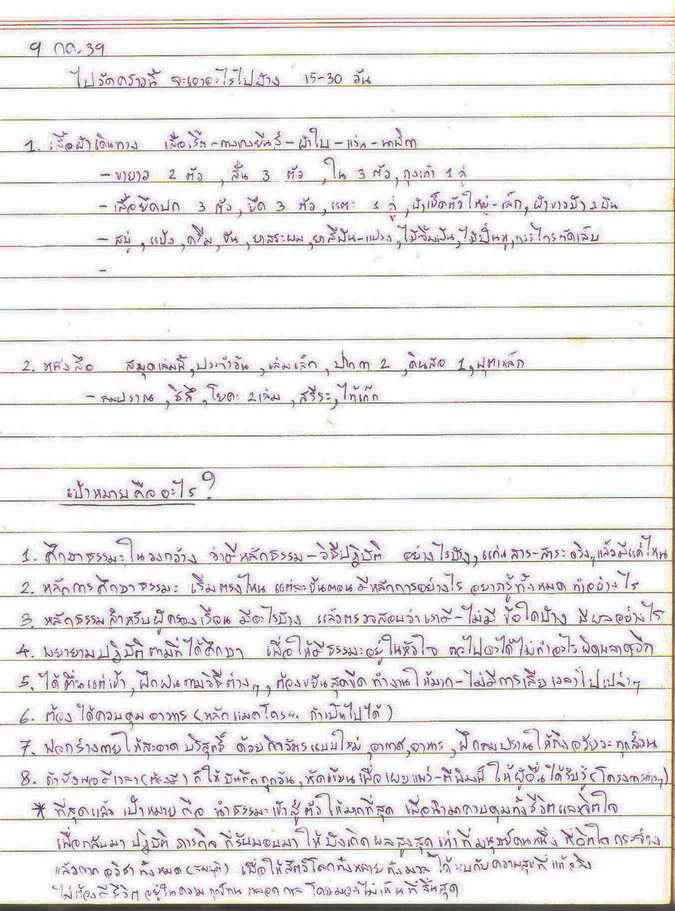 9 กค. 39
ไปวัดคราวนี้ จะเอาอะไรไปบ้าง 15-30 วัน
1. เสื้อผ้าเดินทาง เสื้อเชิ้ต-กางเกงยีนส์-ผ้าใบ-แว่น-นาฬิกา
- ขายาว 2 ตัว, สั้น 3 ตัว, ใน 3 ตัว, ถุงเท้า 1 คู่
- เสื้อยืดปก 3 ตัว, ยืด 3 ตัว, แตะ 1 คู่, ผ้าเช็ดตัวใหญ่-เล็ก, ผ้าขาวม้า 1 ผืน
- สบู่, แป้ง, ครีม, ขัน, ยาสระผม, ยาสีฟัน-แปรง, ไม้จิ้มฟัน, ไม้ปั่นหู, กรรไกรตัดเล็บ
-
2. หนังสือ สมุดเล่มนี้, ประจำวัน, เล่มเล็ก, ปากกา 2, ดินสอ 1, ฟุตเหล็ก
- ลมปราณ, ชี่กง, โยคะ 2 เล่ม, สรีระ, ไท้เก๊ก
เป้าหมายคืออะไร?
1. ศึกษาธรรมะในวงกว้าง ว่ามีหลักธรรม-วิธีปฏิบัติ อย่างไรบ้าง, แก่นสาร-สาระจริงๆ แล้วมีแค่ไหน
2. หลักการศึกษาธรรมะ เริ่มตรงไหน แต่ละขั้นตอนมีหลักการอย่างไร อยากรู้ทั้งหมด ทำอย่างไร
3. หลักธรรมสำหรับผู้ครองเรือน มีอะไรบ้าง แล้วตรวจสอบว่าเรามี-ไม่มี ข้อใดบ้าง มีผลอย่างไร
4. พยายามปฏิบัติตามที่ได้ศึกษา เพื่อให้มีธรรมะอยู่ในหัวใจ ต่อไปจะได้ไม่ทำอะไรผิดพลาดอีก
5. ได้ตื่นแต่เช้า, ฝึกฝนตามวิธีต่างๆ, ต้องขยันสุดขีด ทำงานให้มาก-ไม่มีการเสียเวลาไปเปล่าๆ
6. ต้องได้ควบคุมอาหาร (หลักแมคโคร.. ถ้าเป็นไปได้)
7. ฟอกร่างกายให้สะอาดบริสุทธิ์ ด้วยกิจวัตรแบบใหม่, อากาศ, อาหาร, ฝึกลมปราณให้ถึงอวัยวะทุกส่วน
8. ถ้ายังพอมีเวลา ก็ให้บันทึกทุกวัน, หัดเขียนเพื่อเผยแพร่-ตีพิมพ์ ให้ผู้อื่นได้รับรู้ (โครงการต่างๆ)
* ที่สุดแล้ว เป้าหมายคือ นำธรรมะเข้าสู่ตัวให้มากที่สุด เพื่อนำมาควบคุมทั้งชีวิตและจิตใจ
เพื่อกลับมา ปฏิบัติ ภารกิจที่รับมอบมา ให้บังเกิดผลสูงสุด เท่าที่มนุษย์คนหนึ่ง ที่จิตใจกระจ่าง
แล้วจากอวิชชาทั้งหมด (สมมุติ) เพื่อให้สัตว์โลกทั้งหลายทั้งมวล ได้พบกับความสุขที่แท้จริง
ไม่ต้องมีชีวิตอยู่ในความทุกข์ทน ตลอดกาล โดยมองไม่เห็นที่สิ้นสุด